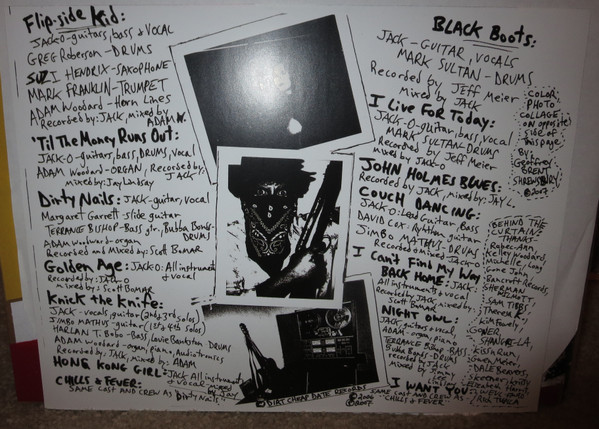 Flip-side Kid:
Jack-O-guitars, bass & vocal
Greg Roberson-DRUMS
SUZI HENDRIX-SAXOPHONE
MARK FRANKLIN-TRUMPET
ADAM Woodard-Horn Lines
Recorded by: Jack, mixed by
ADAM W.
'Til The Money Runs Out:
Jack-O-guitar, bass, DRUMS, vocal
ADAM Woodard-ORGAN, Recorded by:
JACK
mixed by: Jay Lindsay
Dirty Nails: Jack-guitar, vocal
Margaret Garrett-slide guitar
TERRANCE BISHOP-BASS gtr, Bubba Bonds-
DRUMS
ADAM Woodard-organ
Recorded and Mixed by: Scott Bomar
Golden Age: Jack-O: All instruments
& vocal
Recorded by: Jack-O
mixed by: Scott BOMAR
Knick the Knife:
Jack-vocals, guitar (2nd & 3rd solos)
Jimbo MATHUS-guitar (1st & 4th solos)
HARLAN T. Bobo-Bass, Louie Bankston DRUMS
ADAM Woodard-organ, piano, Audiotronics
Recorded by: JACK, mixed by: ADAM
HONG KONG GIRL: JACK All instruments
& vocal-mixed
by Jay
CHILLS & FEVER:
SAME CAST AND CREW AS "Dirty Nails"
BLACK Boots:
JACK-GUITAR, VOCALS
MARK SULTAN-DRUMS
Recorded by Jeff Meier
mixed by JACK
I Live For Today:
JACK-O-guitar, bass, vocal
MARK SULTAN-DRUMS
Recorded by Jeff Meier
mixed by Jack-O
JOHN HOLMES BLUES:
Recorded by JACK, mixed by: JAY L.
COUCH DANCING:
JACK O: Lead Guitar, Bass
DAVID COX-Rhythm guitar
Jimbo MATHUS-DRUMS
Recorded & mixed JACK-O
I Can't Find My Way
BACK HOME: JACK:
All instruments & vocal
Recorded by JACK, mixed by:
Scott Bomar
NIGHT OWL:
Jack, guitars & vocal,
ADAM-organ, piano
TERRANCE BISHOP-BASS
Bubba Bonds-DRUMS
Recorded by JACK
mixed by
I WANT YOU:
SAME
CAST AND CREW AS
"CHILLS & FEVER"
COLOR
PHOTO
COLLAGE
ON opposite
side of
this page
BY:
Geoffrey
BRENT
SHREWSBURY
©2007
BEHIND THE
CURTAINS
THANKS-
Kelley Woodard,
Long Gone John,
Bancroft Records,
SHERMAN
WILLMOTT
SAM TIBBS
Theresa K.
Kim Fowley
GONER,
SHANGRI-LA,
Kiss'n Run
Jason Meier,
DALE BEAVERS,
Elizabeth Harris,
© DIRT CHEAP DATE RECORDS
©2006
©2007